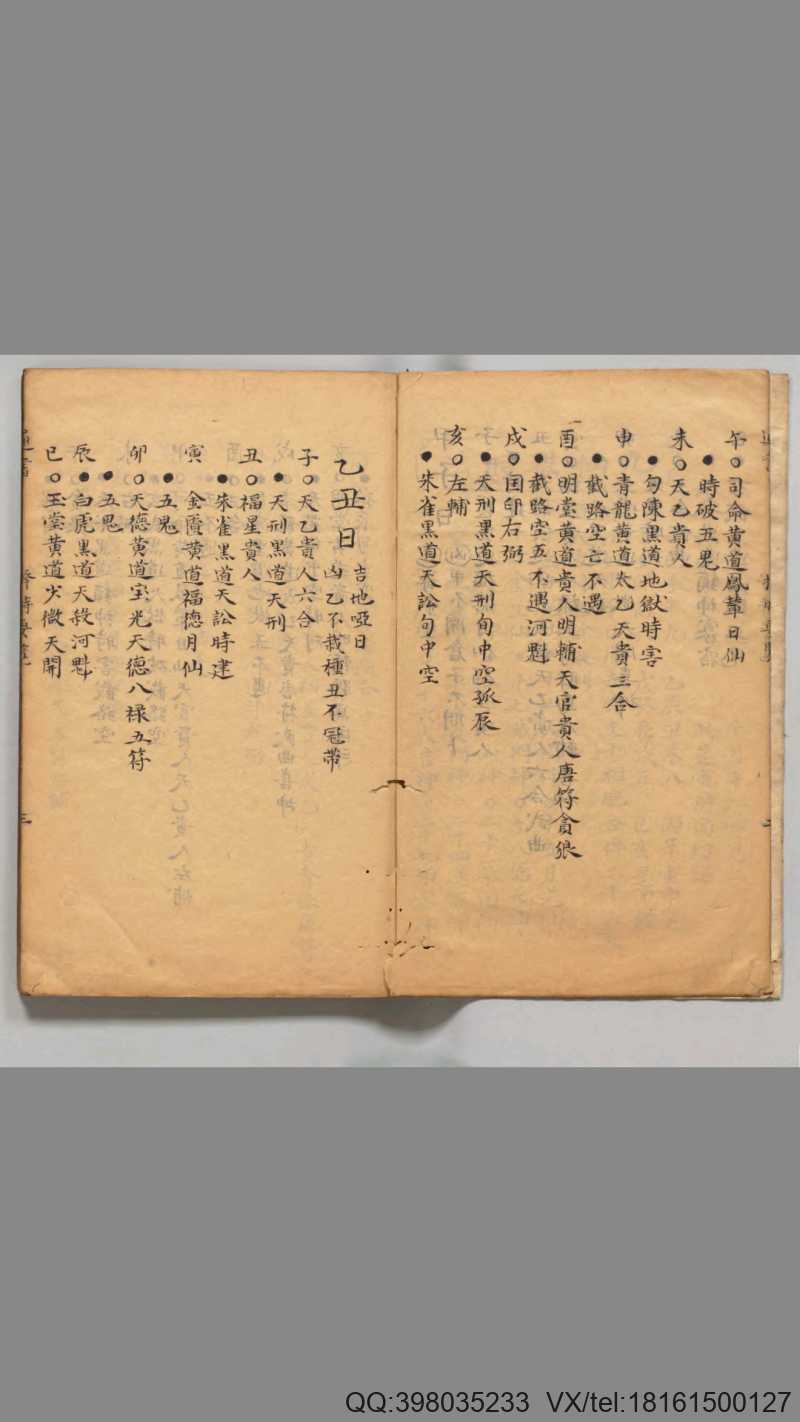 午○司命黄道鳳輦日仙
●時破五鬼
未○天乙貴人
●勾陳黑道地獄時害
申○青龍黄道太乙天貴三合
●截路空亡不遇
酉○明堂黄道貴人明輔天官貴人唐符貪狼
●截路空五不遇河魁
戌○国印右弼
●天刑黑道天刑旬中空孤辰
亥○左輔
●朱雀黑道天訟旬中空
乙丑日
吉地啞日
凶乙不栽種丑不冠帶
子○天乙貴人六合
●天刑黑道天刑
丑○福星貴人
●朱雀黑道天訟時建
寅 金匱黄道福德月仙
●五鬼
卯○天德黄道宝光天德八禄五符
●五鬼
辰●白虎黑道天殺河魁
巳○玉堂黄道少微天開
三
QQ:398035233 VX/tel:18161500127